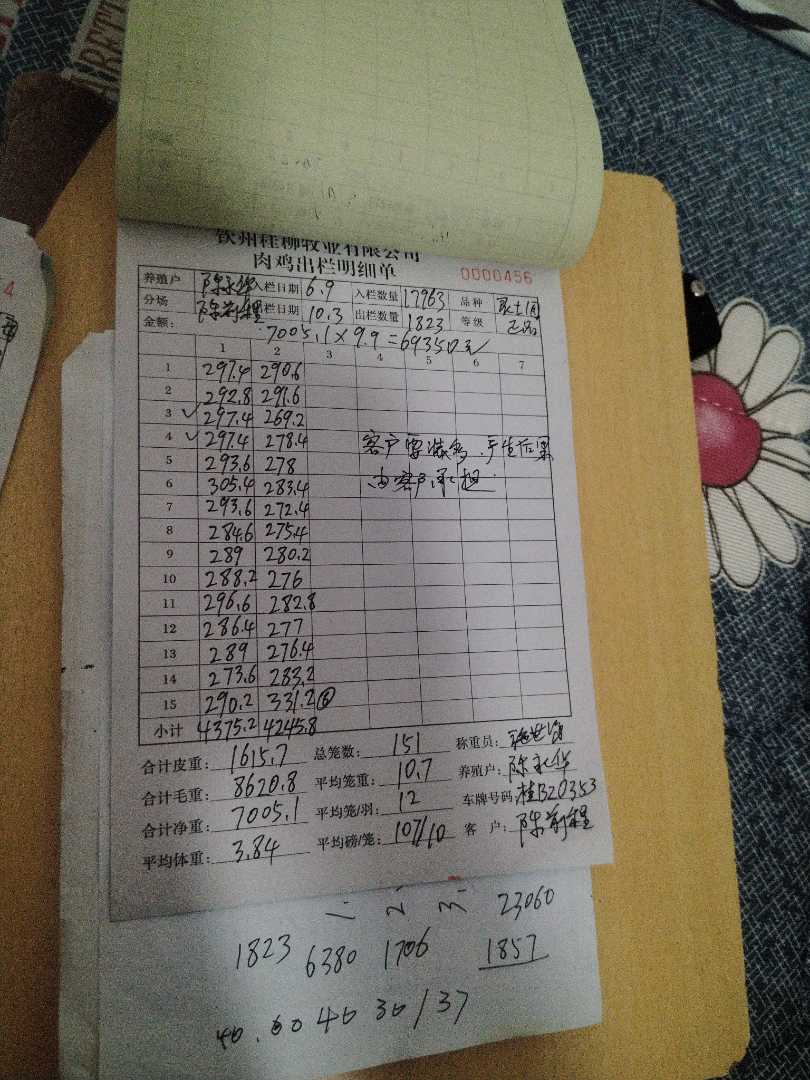 钦州桂柳牧业有限公司
肉鸡出栏明细单 0000456
养殖户 陈永华 入栏日期 6.9 入栏数量 17963 品种
分场 陈前程 出栏日期 10.3 出栏数量 1823 等级 正品
金额: 7005.1×9.9=69350元
1 2 3 4 5 6 7
1 297.4 290.6
2 292.8 291.6
3 ✓ 297.4 269.2
4 ✓ 297.4 278.4 客户要装多.产生后果
5 293.6 278 由客户承担.
6 305.4 283.4
7 293.6 272.4
8 284.6 275.4
9 289 280.2
10 288.2 276
11 296.6 282.8
12 286.4 277
13 289 276.4
14 273.6 283.2
15 290.2 331.2 ⑥
小计 4375.2 4245.8
合计皮重: 1615.7 总笼数: 151 称重员:
合计毛重: 8620.8 平均笼重: 10.7 养殖户: 陈永华
合计净重: 7005.1 平均笼/羽: 12 车牌号码: 桂B20353
平均体重: 3.84 平均磅/笼: 107/10 客 户: 陈前程
23060
1823 6380 1706 1857
40.60 40 30/37